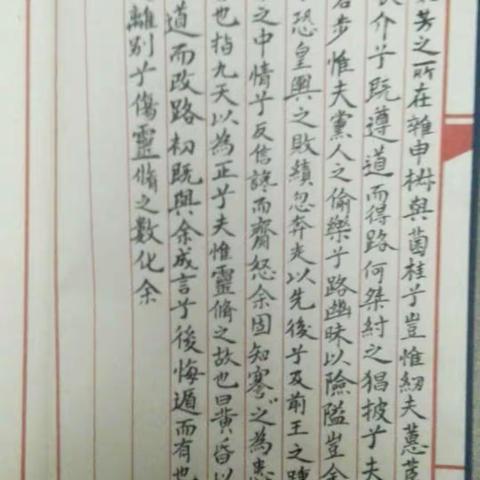 芳之所在雜申椒與菌桂兮豈惟紉夫蕙茝
介兮既遵道而得路何桀紂之猖披兮夫
步惟夫黨人之偷樂兮路幽昧以險隘豈余
恐皇輿之敗績忽奔走以先後兮及前王之踵
之中情兮反信讒而齌怒余固知謇〻之為患
也指九天以為正兮夫惟靈脩之故也曰黃昏以
道而改路初既與余成言兮後悔遁而有
離別兮傷靈脩之數化余